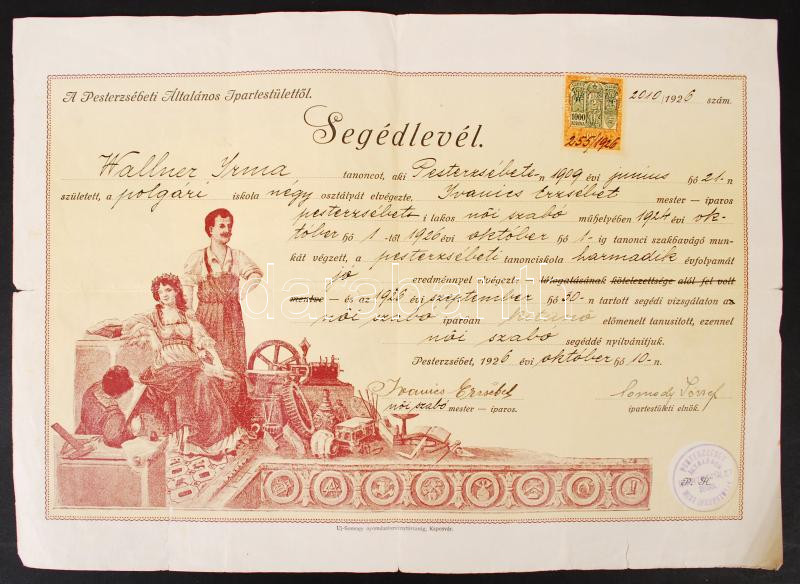 A Pesterzsébeti Általános Ipartestülettől.
2010/1926 szám.
1000
KORONA
255/1926
Segédlevél.
Wallner Irma tanoncot, aki Pesterzsébet-n 1909 évi junius hó 21-n
született, a polgári iskola négy osztályát elvégezte, Ivanics Erzsébet mester — iparos
pesterzsébeti lakos női szabó műhelyében 1924 évi ok-
tóber hó 1-től 1926 évi október hó 1-ig tanonci szakbavágó mun-
kát végzett, a pesterzsébeti tanonciskola harmadik évfolyamát
jó eredménnyel elvégezte látogatásának kötelezettsége alól fel volt
mentve — és az 1926 évi szeptember hó 30-n tartott segédi vizsgálaton az
női szabó iparban előmenetelt tanusított, ezennel
női szabó segéddé nyilvánítjuk.
Pesterzsébet, 1926 évi október hó 10-n.
Ivanics Erzsébet
női szabó mester — iparos.
ipartestületi elnök.
P. H.
Uj-Somogy nyomdarészvénytársaság, Kaposvár.
darabanth